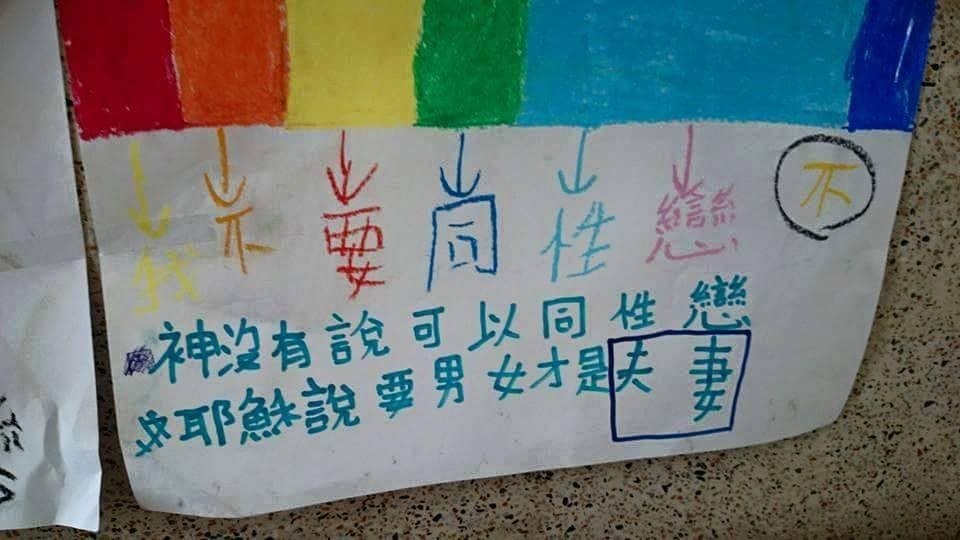 我不要同性戀 不
神沒有說可以同性戀
耶穌說要男女才是夫妻